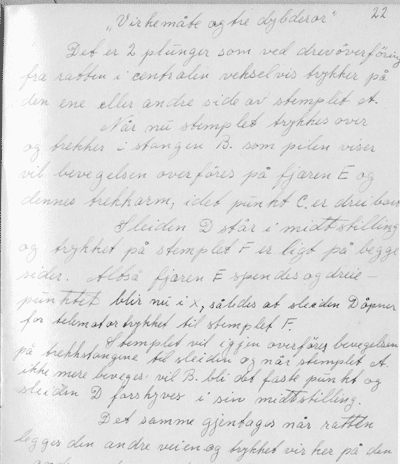 22
„Virkemåte og tre dybderor"
Det er 2 plunger som ved drevöverföring
fra ratten i centralen vekselvis trykker på
den ene eller andre side av stemplet A.
Når nu stemplet trykkes over
og trekker i stangen B. som pilen viser
vil bevegelsen overföres på fjæren E og
dennes trekkarm, idet punkt C. er dreibar
Sleiden D står i midtstilling
og trykket på stemplet F er ligt på begge
sider. Altså fjæren E spendes og dreie-
punktet blir nu i x, således at sleiden D åpner
for telemotortrykket til stemplet F.
Stemplet vil igjen overföres bevegelsen
på trekkstangene til sleiden og når stemplet A.
ikke mere beveges vil B. bli det faste punkt og
sleiden D forskyves i sin midtstilling.
Det samme gjentages når ratten
legges den andre veien og trykket vir her på den